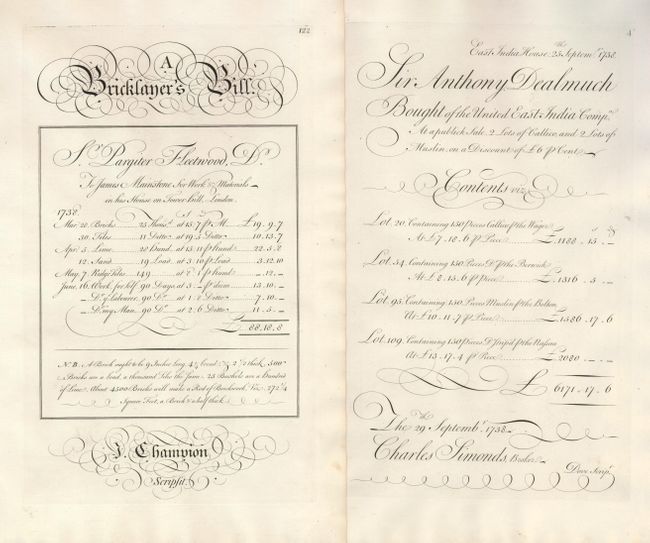 122
A
Bricklayer's Bill.
Sr. Pargiter Fleetwood, Dr.
To James Mainstone For Work & Materials
on his House on Tower Hill, London.
1738.
Mar. 20 Bricks 25 Thousd. at 15.7 p M. £19.9.7
30. Tiles 11 Ditto at 19.5 Ditto 10.13.7
Apr. 5. Lime 20 Hund. at p Hund 22.5.8
12. Sand 19 Load at 3.10 p Load 3.12.10
May. 7. Ridge Tiles 149 at p Hund .12.
June. 16. Work for self 90 Days at 3 p diem 13.10.
Dr. of Labourer 90 Ds. at 1.8 Ditto 7.10.
Do. my Man 90 Ds. at 2.6 Ditto 11.5.
£ 88.18.8
N.B. A Brick ought to be 9 Inches long 4½ broad & 2¼ thick 500
Bricks are a load, a thousand Tiles the same 25 Bushels are a Hundred
of Lime. About 4500 Bricks will make a Rod of Brickwork, Viz. 272¼
Square Feet, a Brick & a half thick
J. Champion
Scripsit.
4
East India House 25th Septemr. 1738
Sir Anthony Dealmuch
Bought of the United East-India Compny.
At a publick Sale 2 Lots of Callico, and 2 Lots of
Muslin, on a Discount of £6 p Cent
Contents viz.
Lot. 20. Containing 150 Pieces Callico p the Wager
At £7.18.6 p Piece £1188.15.
Lot. 54. Containing 150 Pieces Do. p the Berwick
At £8.15.6 p Piece £1316.5.
Lot. 95. Containing 150 Pieces Muslin p the Bolton
At £10.11.7 p Piece £1586.17.6
Lot. 109. Containing 150 Pieces Do. strip'd p the Nassau
At £13.17.4 p Piece £2080.
£ 6171.17.6
The 29th Septembr. 1738
Charles Simonds, Broker
Dove Scrip.